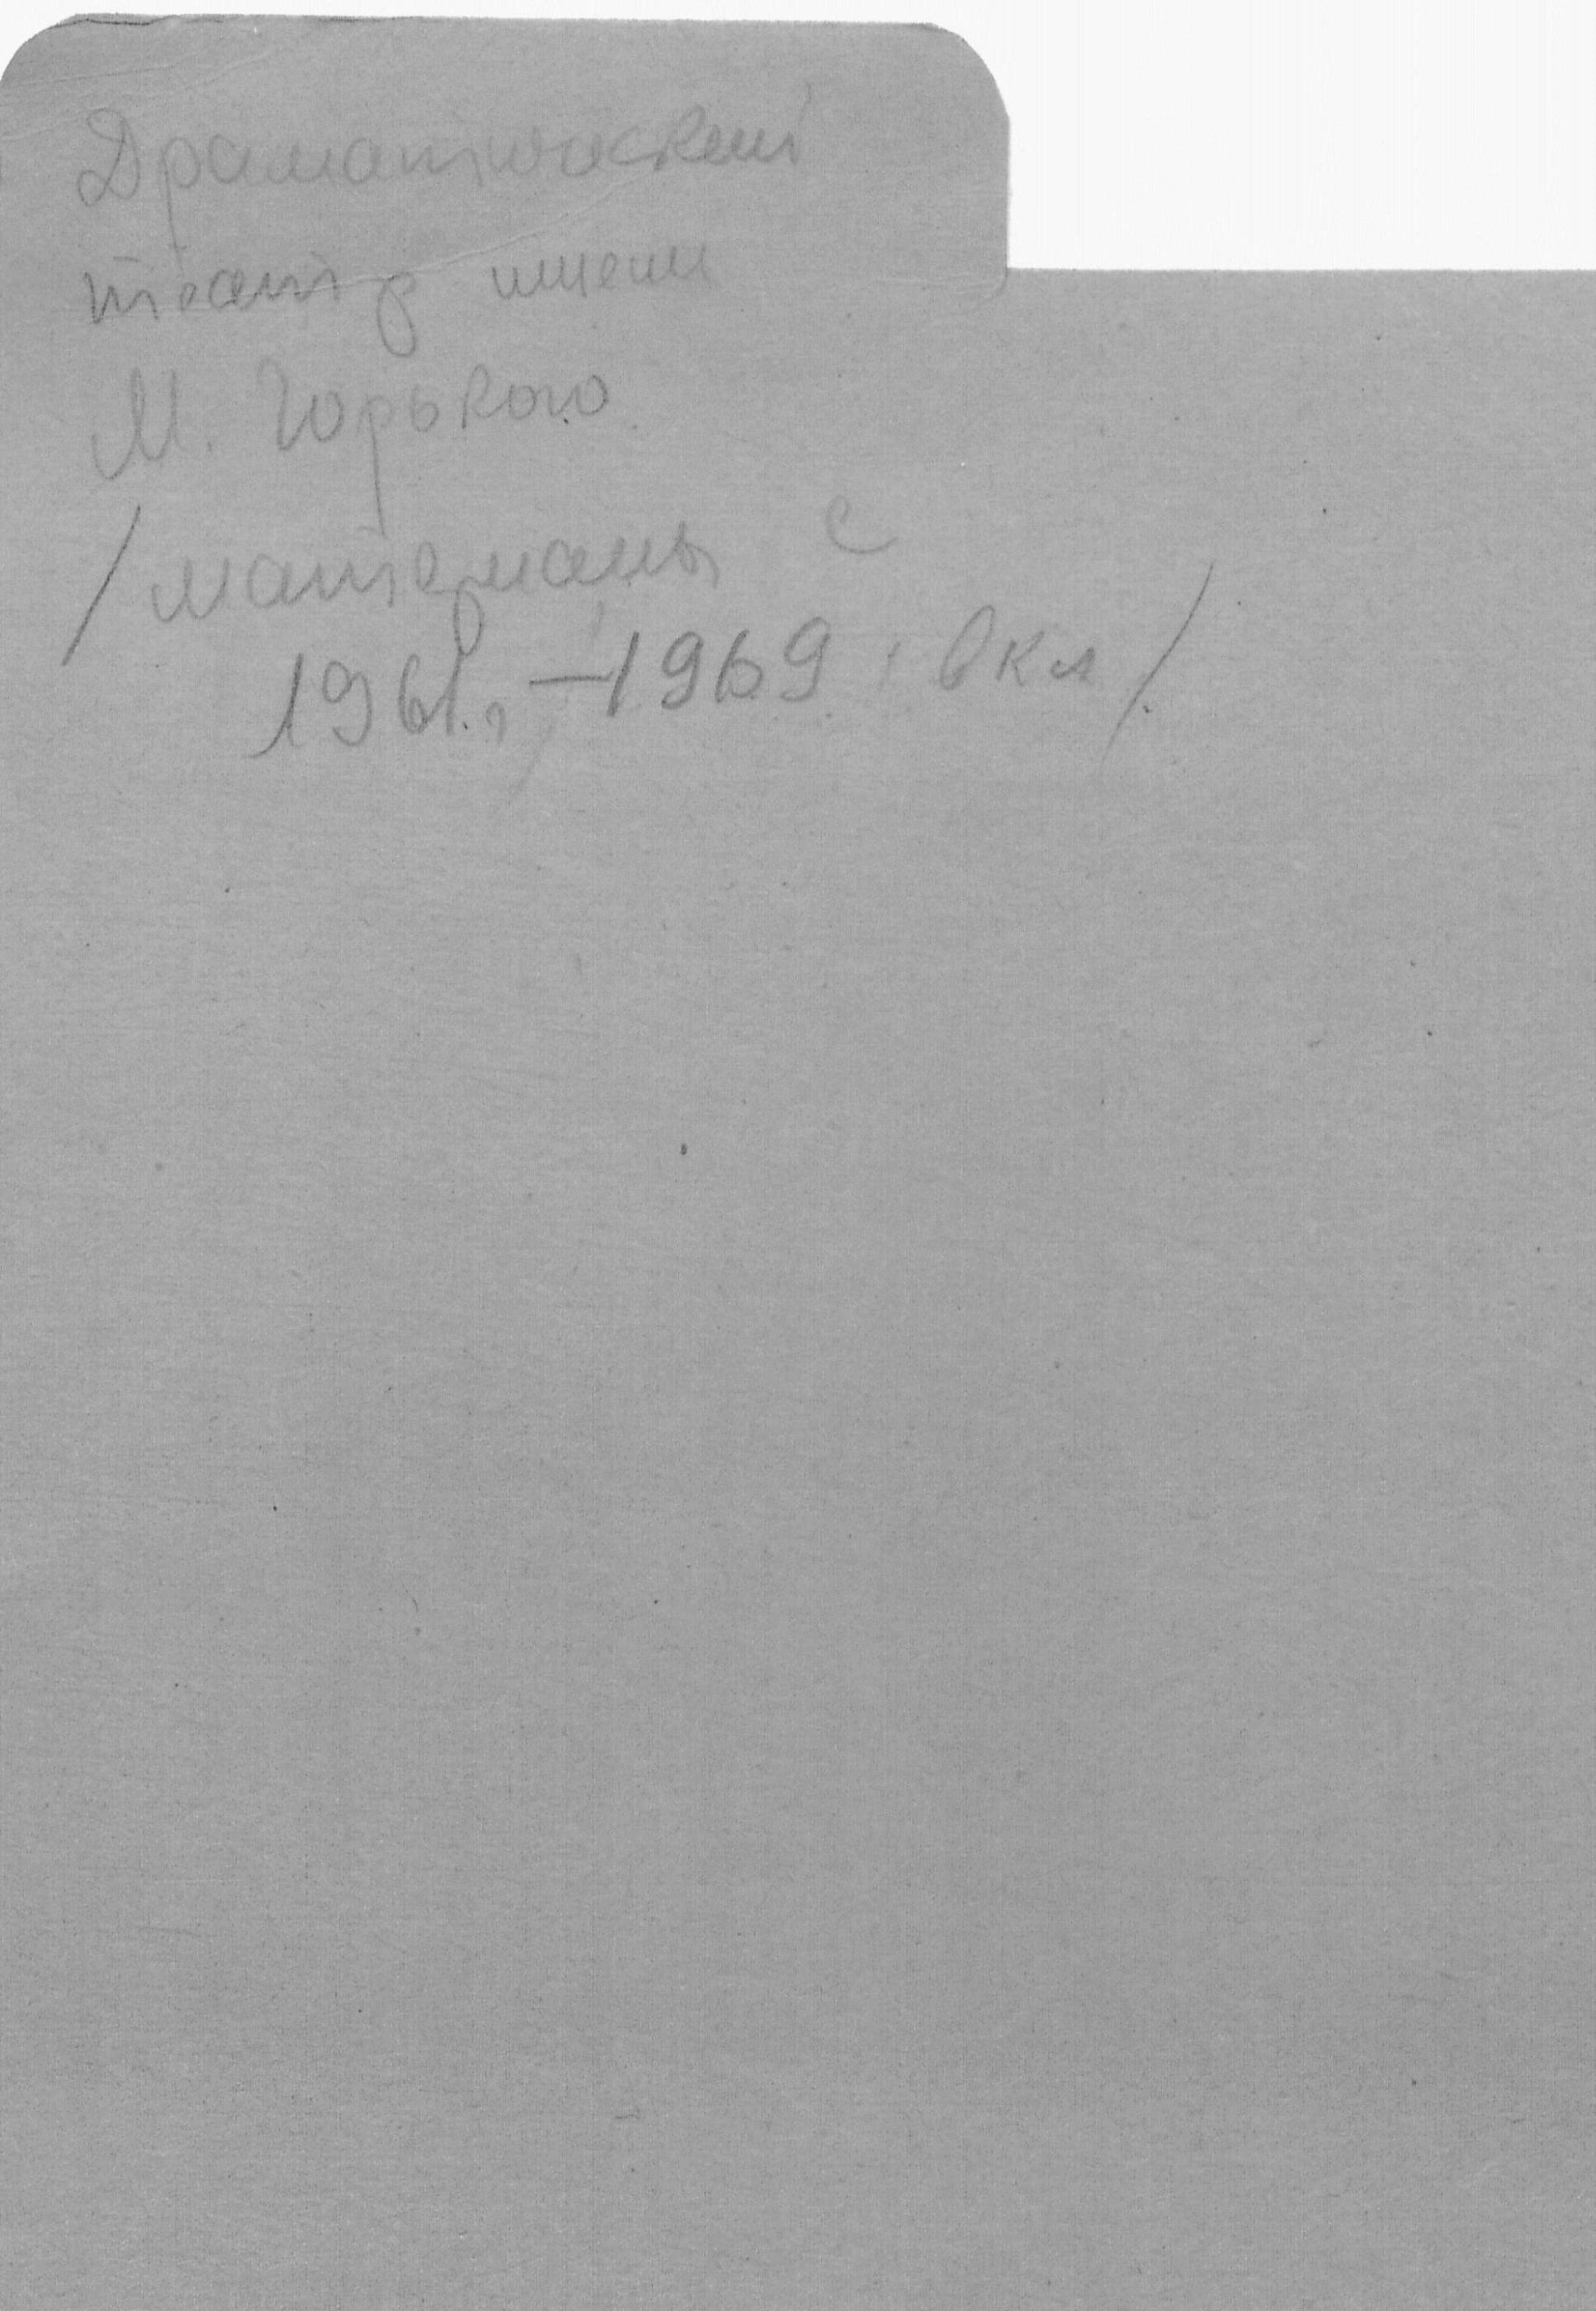 Драматический
театр имени
М. Горького
/материалы с
1961г. – 1969 г. вкл/